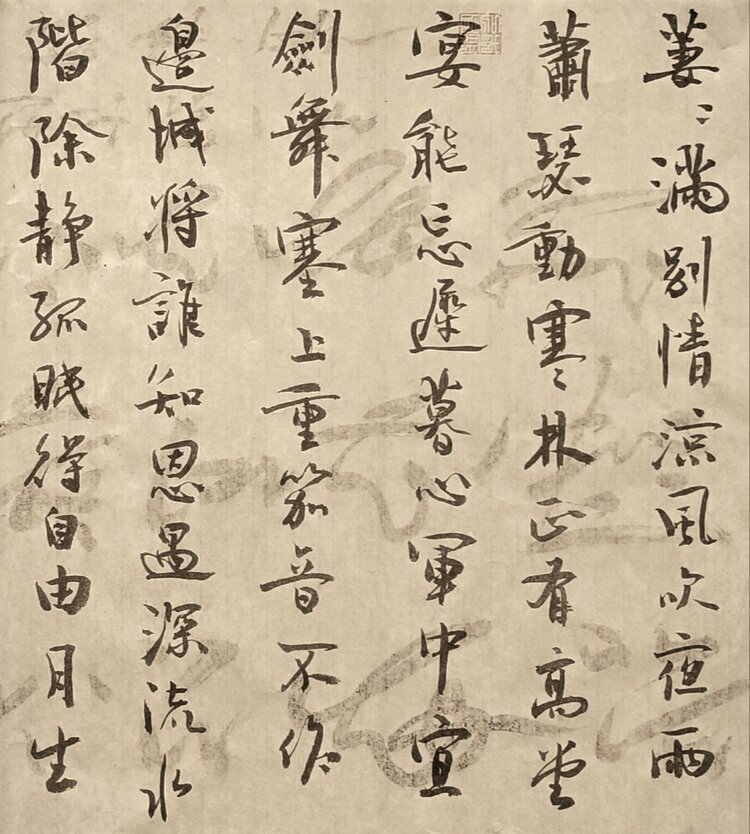 萋〻滿別情涼風吹夜雨
蕭瑟動寒〻林正有高堂
宴能忘遲暮心軍中宜
劒舞塞上重笳音不作
邊城將誰知恩遇深流水
階除静孤眠得自由月生